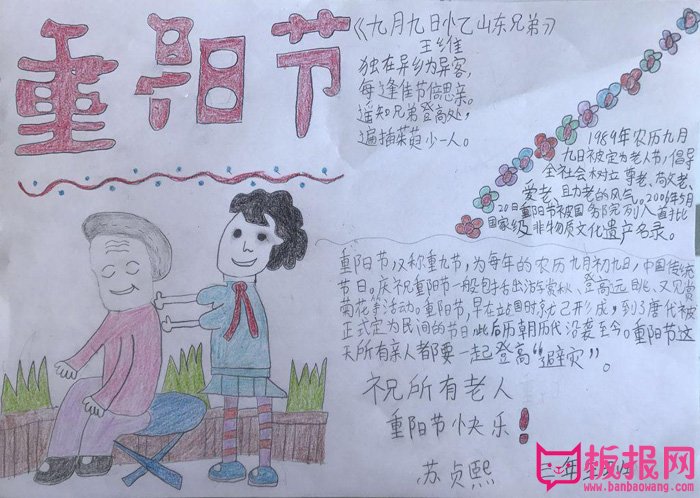 重阳节
《九月九日忆山东兄弟》
王维
独在异乡为异客,
每逢佳节倍思亲。
遥知兄弟登高处,
遍插茱萸少一人。
1989年农历九月
九日被定为老人节,倡导
全社会树立尊老、敬老、
爱老、助老的风气。2006年5月
20日重阳节被国务院列入首批
国家级非物质文化遗产名录。
重阳节,又称重九节,为每年的农历九月初九日,中国传统
节日。庆祝重阳节一般包括出游赏秋、登高远眺、观赏
菊花等活动。重阳节,早在战国时就已形成,到了唐代被
正式定为民间的节日此后历朝历代沿袭至今。重阳节这
天所有亲人都要一起登高“避灾”。
祝所有老人
重阳节快乐!
苏贞熙
板报网
www.banbaowang.com